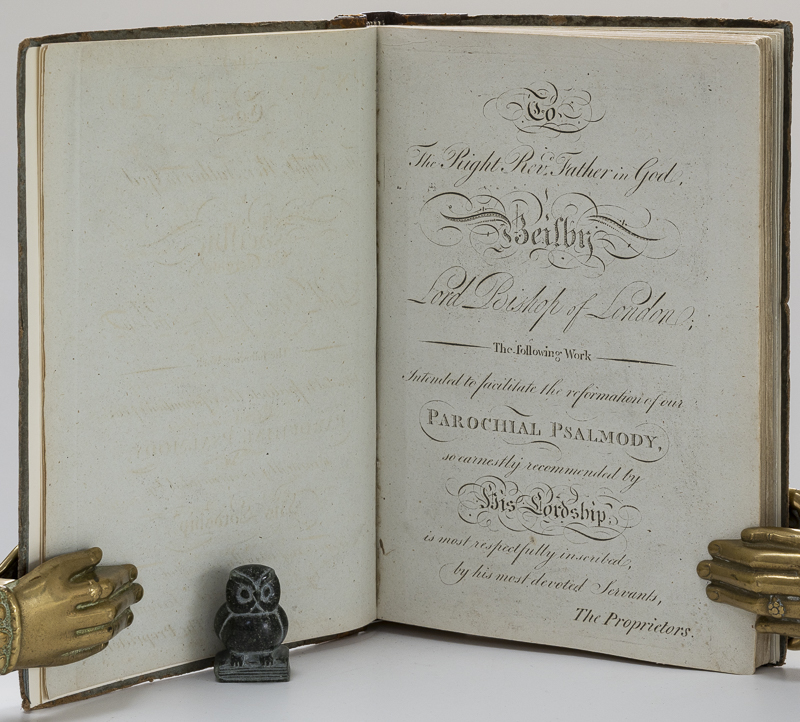 To
The Right Revᵈ. Father in God,
Beilby
Lord Bishop of London;
The following Work
Intended to facilitate the reformation of our
PAROCHIAL PSALMODY,
so earnestly recommended by
His Lordship,
is most respectfully inscribed,
by his most devoted Servants,
The Proprietors.